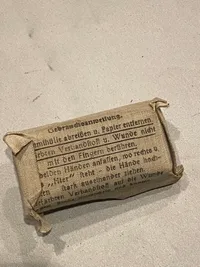 Gebrauchsanweilung.
umhülle abreißen u. Papier entfernen.
ärbten Verbandhoff u. Wunde nicht
mit den Fingern berühren.
beiden Händen anfassen, wo rechts u.
„Hier" steht - die Hände hoch-
stark auseinander ziehen.
färbten Verbandhoff auf die Wunde